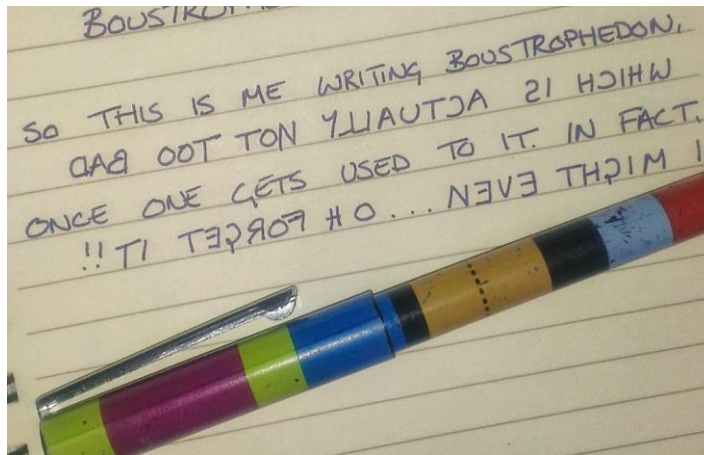 SO THIS IS ME WRITING BOUSTROPHEDON,
WHICH IS ACTUALLY NOT TOO BAD
ONCE ONE GETS USED TO IT. IN FACT,
I MIGHT EVEN... OH FORGET IT!!